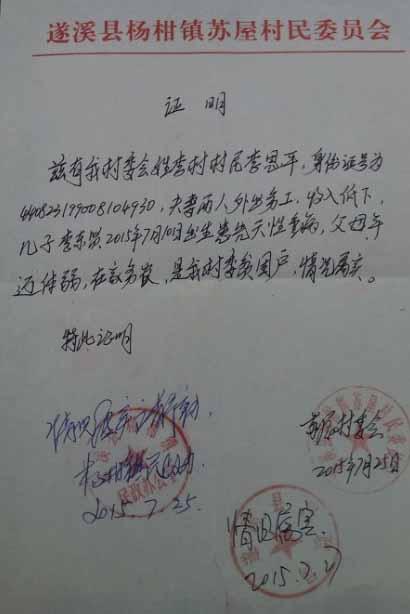 遂溪县杨柑镇苏屋村民委员会
证 明
兹有我村委会姓李村村民李恩平，身份证号为
440823199008104930，夫妻两人外出务工，收入低下，
儿子李东 2015年7月10日出生患先天性重病，父母年
迈体弱，在家务农，是我村委贫困户，情况属实。
特此证明
情况
杨柑镇民政办
2015.7.25
苏屋村委会
2015年7月25日
情况属实.
2015.7.27